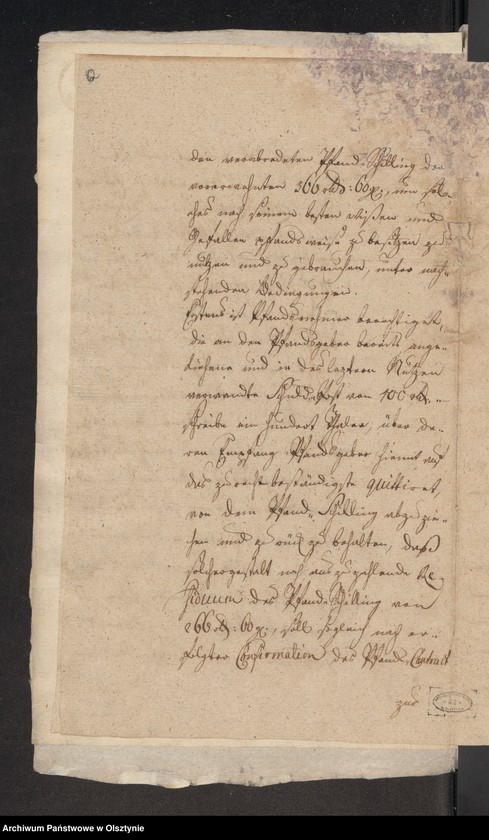 den verabredeten Pfand-Schilling der
vorerwehnten 366 rtl: 60 gr:, um sol-
ches nach seinem besten Wißen und
Gefallen pfandsweise zu besitzen zu
nutzen und zu gebrauchen, unter nach-
stehenden Bedingungen.
Erstens ist Pfandsnehmer berechtiget,
die an den Pfandsgeber bereits ange-
liehene und in des leztern Nutzen
verwendte Schuld Post von 100 rtl.
schreibe ein hundert Thaler, über de-
ren Empfang Pfandsgeber hiemit auf
das zu recht beständigste quittiret,
von dem Pfand-Schilling abzuzie-
hen und zurück zu behalten, daß
solchergestalt noch auszuzahlende Re-
siduum des Pfand-Schilling von
266 rtl: 60 gr:, soll sogleich nach er-
folgter Confirmation des Pfands-Contract
zur
Archiwum Państwowe w Olsztynie